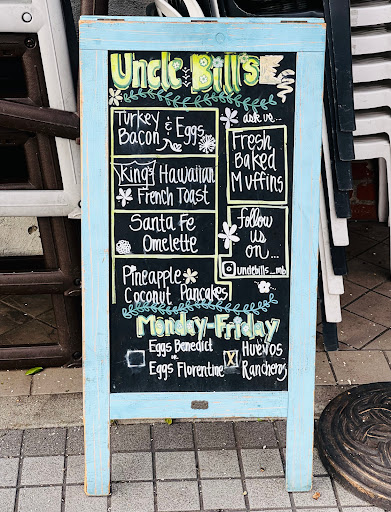 Uncle Bill's
Turkey
Bacon & Eggs
ask us...
Fresh
Baked
Muffins
King's Hawaiian
French Toast
Santa Fe
Omelette
Follow
us
on...
unclebills_mb
Pineapple
Coconut Pancakes!
Monday-Friday
Eggs Benedict
or
Eggs Florentine
Huevos
Rancheros